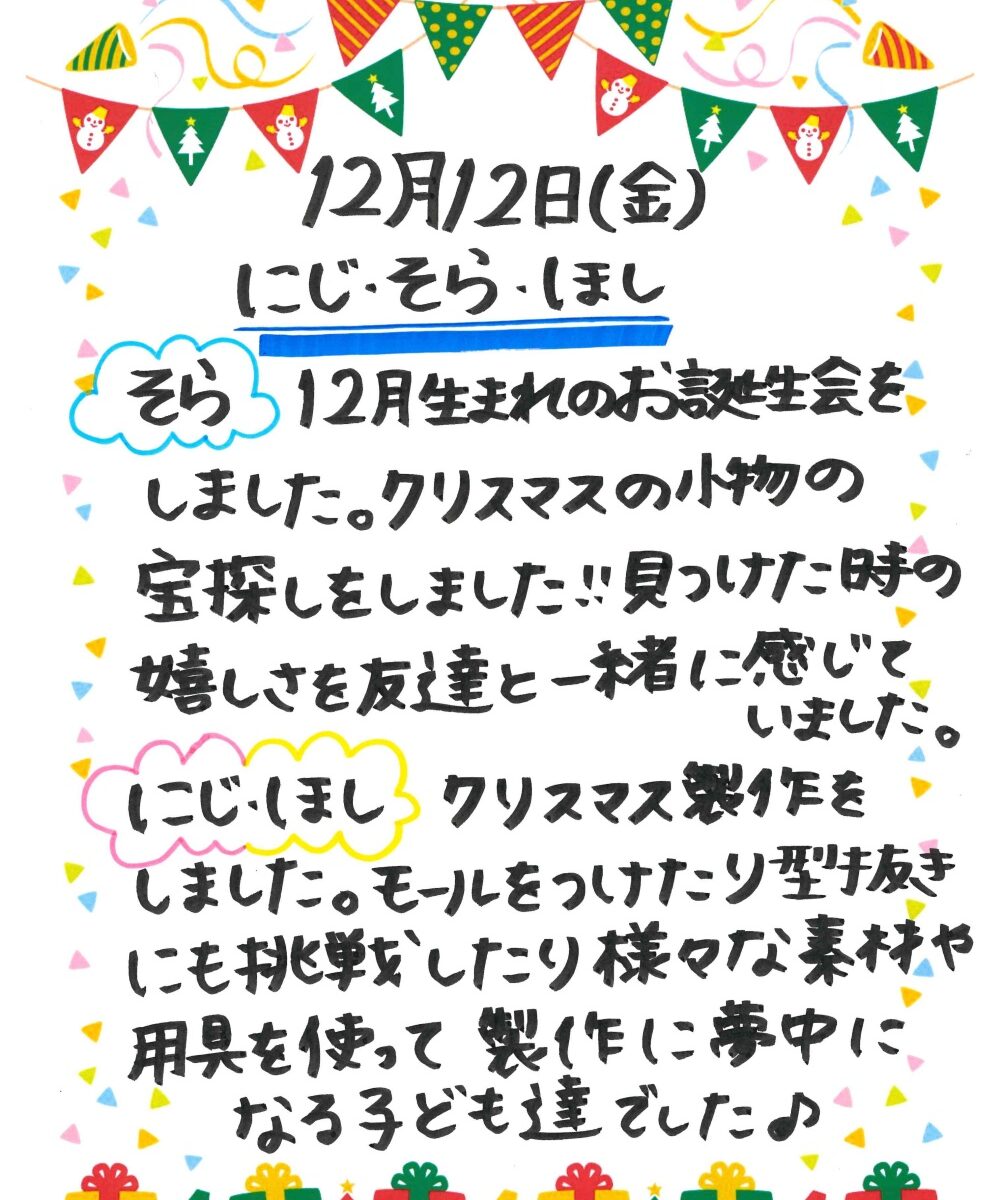 12月12日(金)
にじ・そら・ほし
そら 12月生まれのお誕生会を
しました。クリスマスの小物の
宝探しをしました!!見つけた時の
嬉しさを友達と一緒に感じて
いました。
にじ・ほし クリスマス製作を
しました。モールをつけたり型抜き
にも挑戦したり様々な素材や
用具を使って製作に夢中に
なる子ども達でした♪